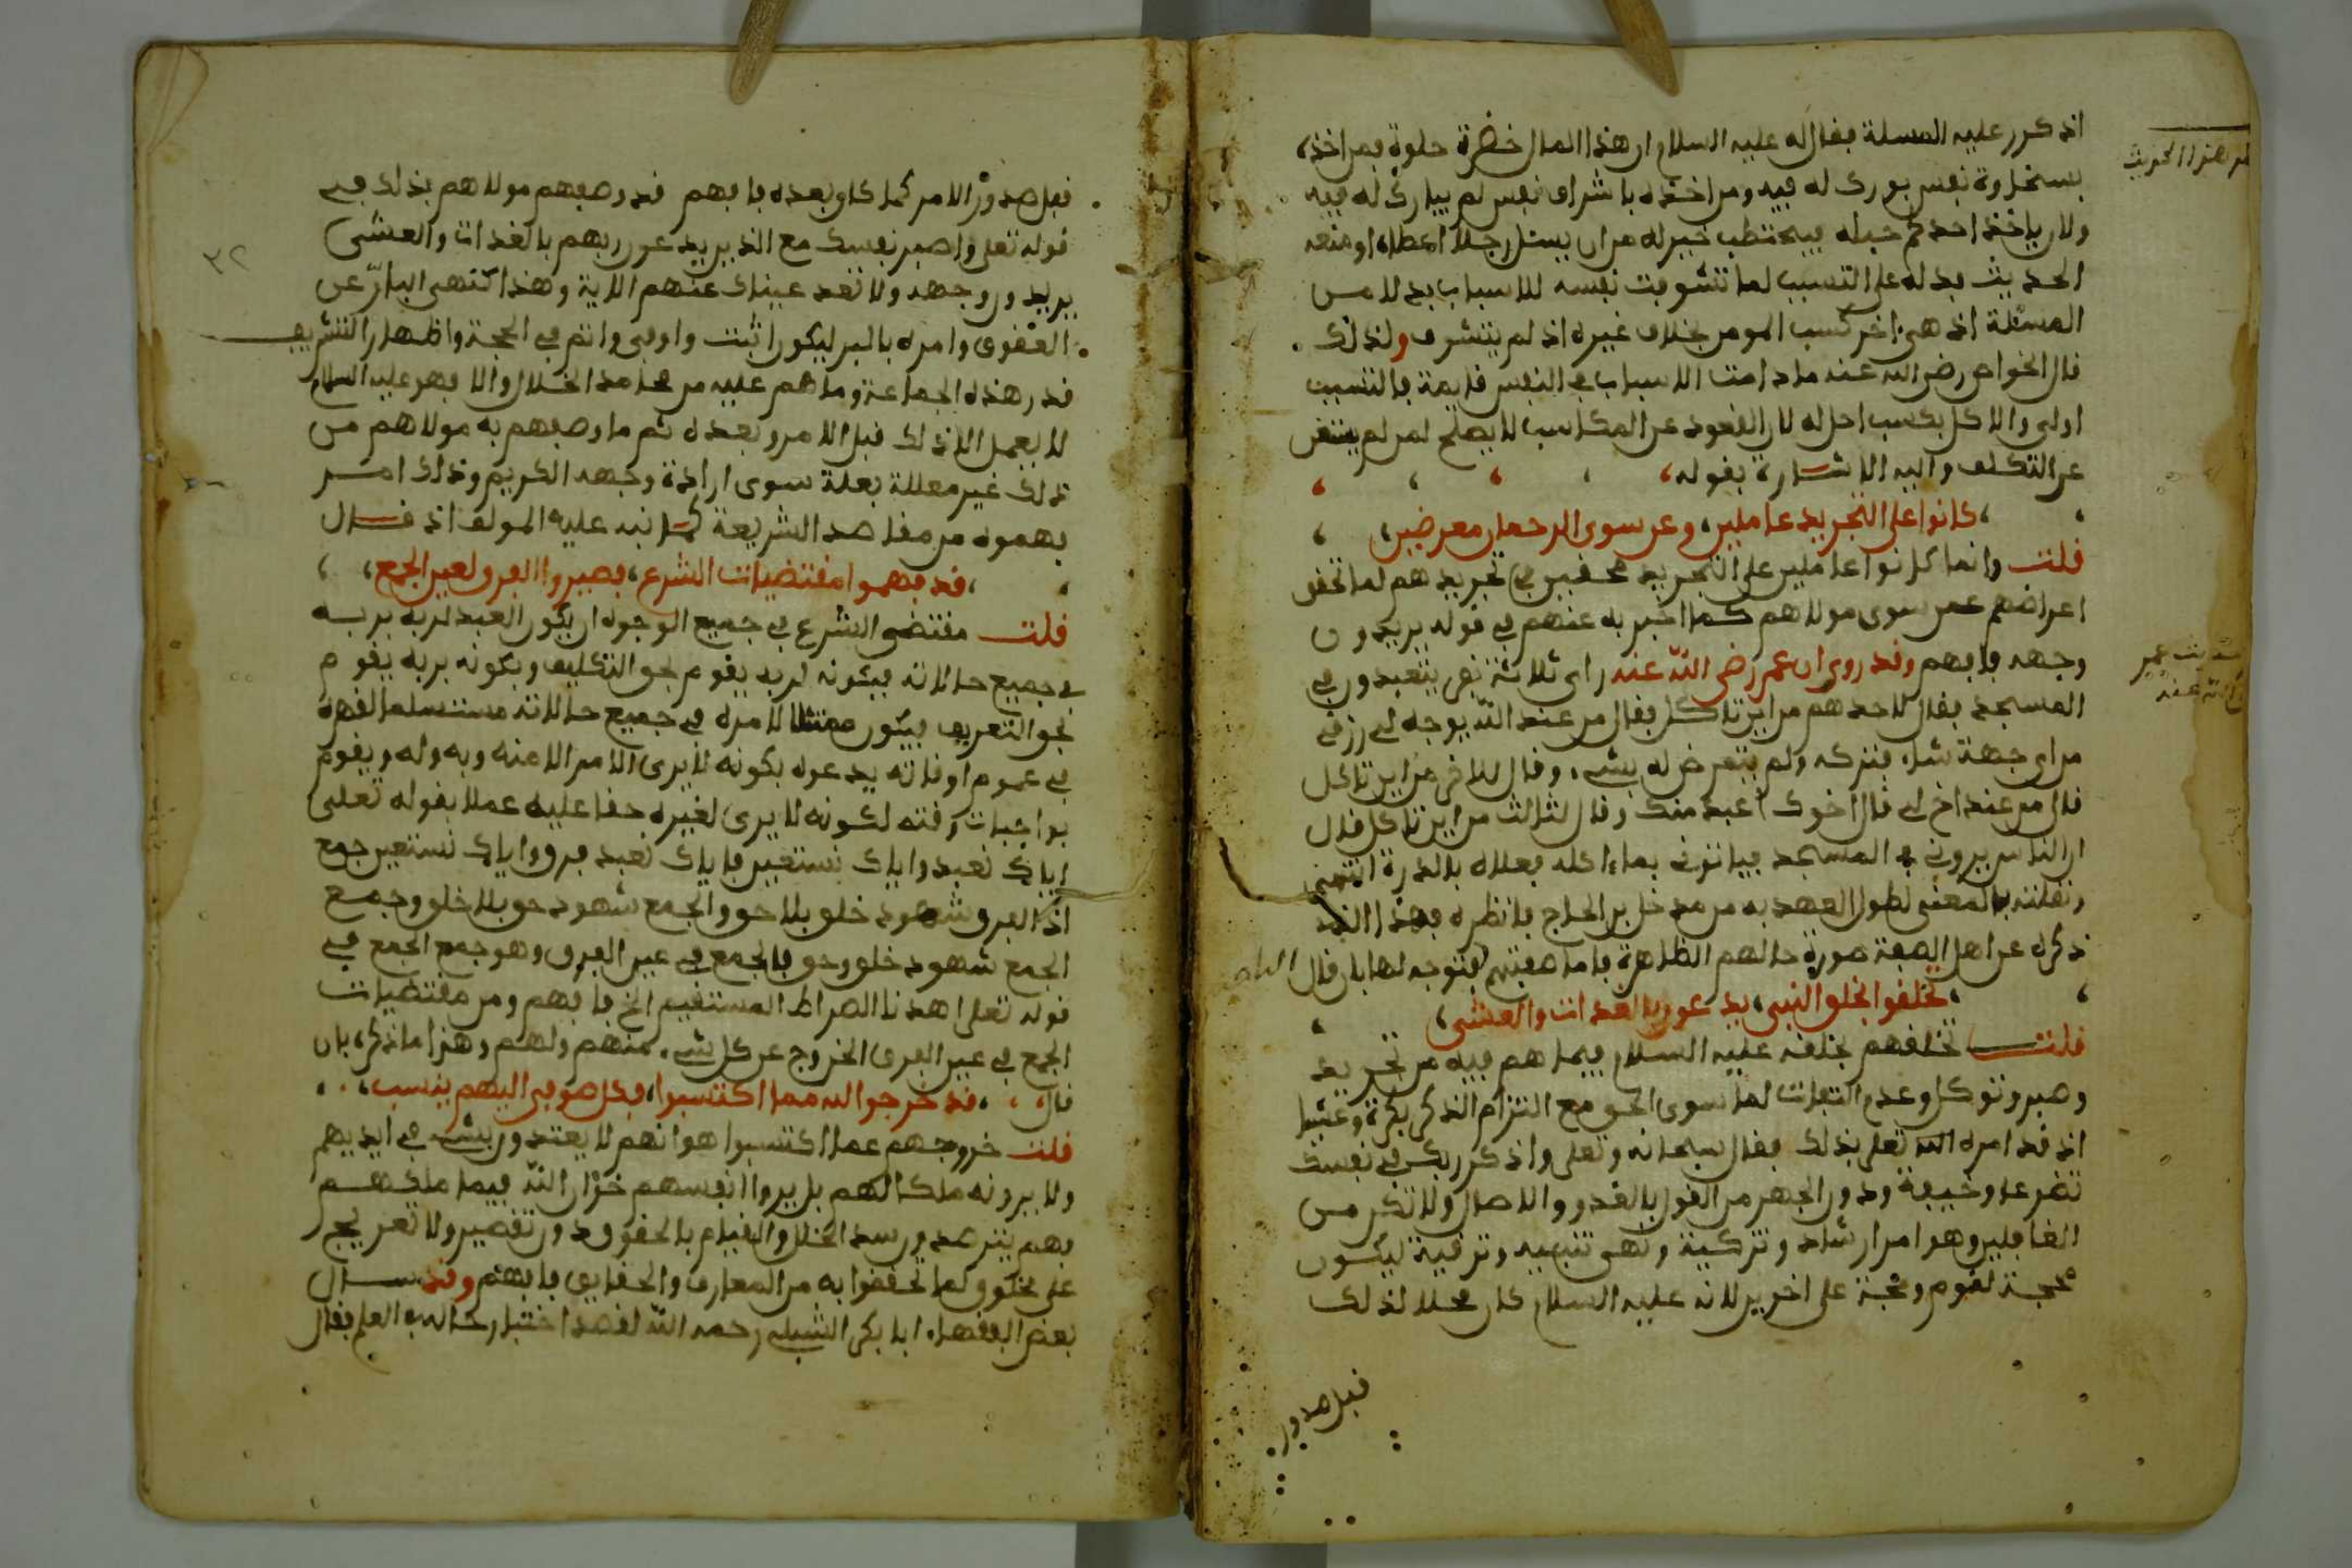 اذ كرر عليه المسلة فقال له عليه السلام ان هذا المال خضرة حلوة فمن اخذه
بسخاوة نفس بورك له فيه ومن اخذه باشراف نفس لم يبارك له فيه
ولان ياخذ احدكم حبله فيحتطب خير له من ان يسئل رجلا اعطاه او منعه
الحديث فدله على التسبب لما تشوفت نفسه للاسباب بدلا من
المسئلة اذ هي اخر كسب المومن بخلاف غيره اذ لم يتشرف ولذلك
قال الخواص رضي الله عنه ما دامت الاسباب في النفس قايمة فالتسبب
اولى والاكل بكسب احل له لان القعود عن المكاسب لا يصلح لمن لم يستغن
عن التكلف واليه الاشارة بقوله
كانوا على التجريد عاملين، وعن سوى الرحمان معرضين،
قلت وانما كانوا عاملين على التجريد محققين في تجريدهم لما تحقق
اعراضهم عمن سوى مولاهم كما اخبر به عنهم في قوله يريدون
وجهه فافهم وقد روي ان عمر رضي الله عنه راى ثلاثة نفر يتعبدون في
المسجد فقال لاحدهم من اين تاكل فقال من عند الله يوجه لي رزقي
من اي جهة شاء فتركه ولم يتعرض له بشيء. وقال للاخر من اين تاكل
قال من عند اخ لي قال اخوك اعبد منك وقال لثالث من اين تاكل قال
ان الناس يروني في المسجد فياتوني بما ءاكله فعلاه بالدرة انتهى
ونقلته بالمعنى لطول العهد به من مدخل بن الحاج فانظره فهذا الذي
ذكره عن اهل الصفة صورة حالهم الظاهرة فاما حقيقتهم فتوجه لها بان قال
تخلقوا بخلق النبي، يدعون بالغدات والعشي،
قلت تخلقهم بخلقه عليه السلام فيما هم فيه من تجريد
وصبر وتوكل وعدم التفات لما سوى الحق مع التزام الذكر بكرة وعشيا
اذ قد امره الله تعلى بذلك فقال سبحانه وتعلى واذكر ربك في نفسك
تضرعا وخيفة ودون الجهر من القول بالغدو والاصال ولا تكن من
الغافلين وهو امر ارشاد وتزكية ونهى تنبيه وترقية ليكون
محجة لقوم وحجة على اخرين لانه عليه السلام كان محلا لذلك
قبل صدور
قبل صدور الامر كما كان بعده فافهم قد وصفهم مولاهم بذلك في
قوله تعلى واصبر نفسك مع الذين يدعون ربهم بالغدات والعشي
يريدون وجهه ولا تعد عيناك عنهم الاية وهذا كنهي البار عن
العقوق وامره بالبر ليكون اثبت واوفى واتم في الحجة واظهار التشريف
قدر هذه الجماعة وما هم عليه من محامد الخلال والا فهو عليه السلام
لا يعمل الا ذلك قبل الامر وبعده ثم ما وصفهم به مولاهم من
ذلك غير معللة بعلة سوى ارادة وجهه الكريم وذلك امر
فهموه من مقاصد الشريعة كما نبه عليه المولف اذ قال
قد فهموا مقتضيات الشرع، فصيروا الفرق لعين الجمع،
قلت مقتضى الشرع في جميع الوجوه ان يكون العبد لربه بربه
في جميع حالاته فبكونه لربه يقوم بحق التكليف وبكونه بربه يقوم
بحق التعريف فيكون ممتثلا لامره في جميع حالاته مستسلما لقهره
في عموم اوقاته يدعوه بكونه لا يرى الامر الا منه وبه وله ويقوم
بواجبات وقته لكونه لا يرى لغيره حقا عليه عملا بقوله تعلى
اياك نعبد واياك نستعين فاياك نعبد فرق واياك نستعين جمع
اذ الفرق شهود خلق بلا حق والجمع شهود حق بلا خلق وجمع
الجمع شهود خلق وحق فالجمع في عين الفرق وهو جمع الجمع في
قوله تعلى اهدنا الصراط المستقيم الخ فافهم ومن مقتضيات
الجمع في عين الفرق الخروج عن كل شيء. منهم ولهم وهذا ما ذكره بان
قال، ،قد خرجوا لله مما اكتسبوا، فكل صوفي اليهم ينسب،
قلت خروجهم عما اكتسبوا هو انهم لا يعتدون بشيء في ايديهم
ولا يرونه ملكا لهم بل يروا انفسهم خزان الله فيما ملكهم
فهم يترصدون سد الخلل والقيام بالحقوق دون تقصير ولا تعريج
على مخلوق لما تحققوا به من المعارف والحقايق فافهم وقد سال
بعض الفقهاء ابا بكر الشبلي رحمه الله لقصد اختبار حاله في العلم فقال
٣٢